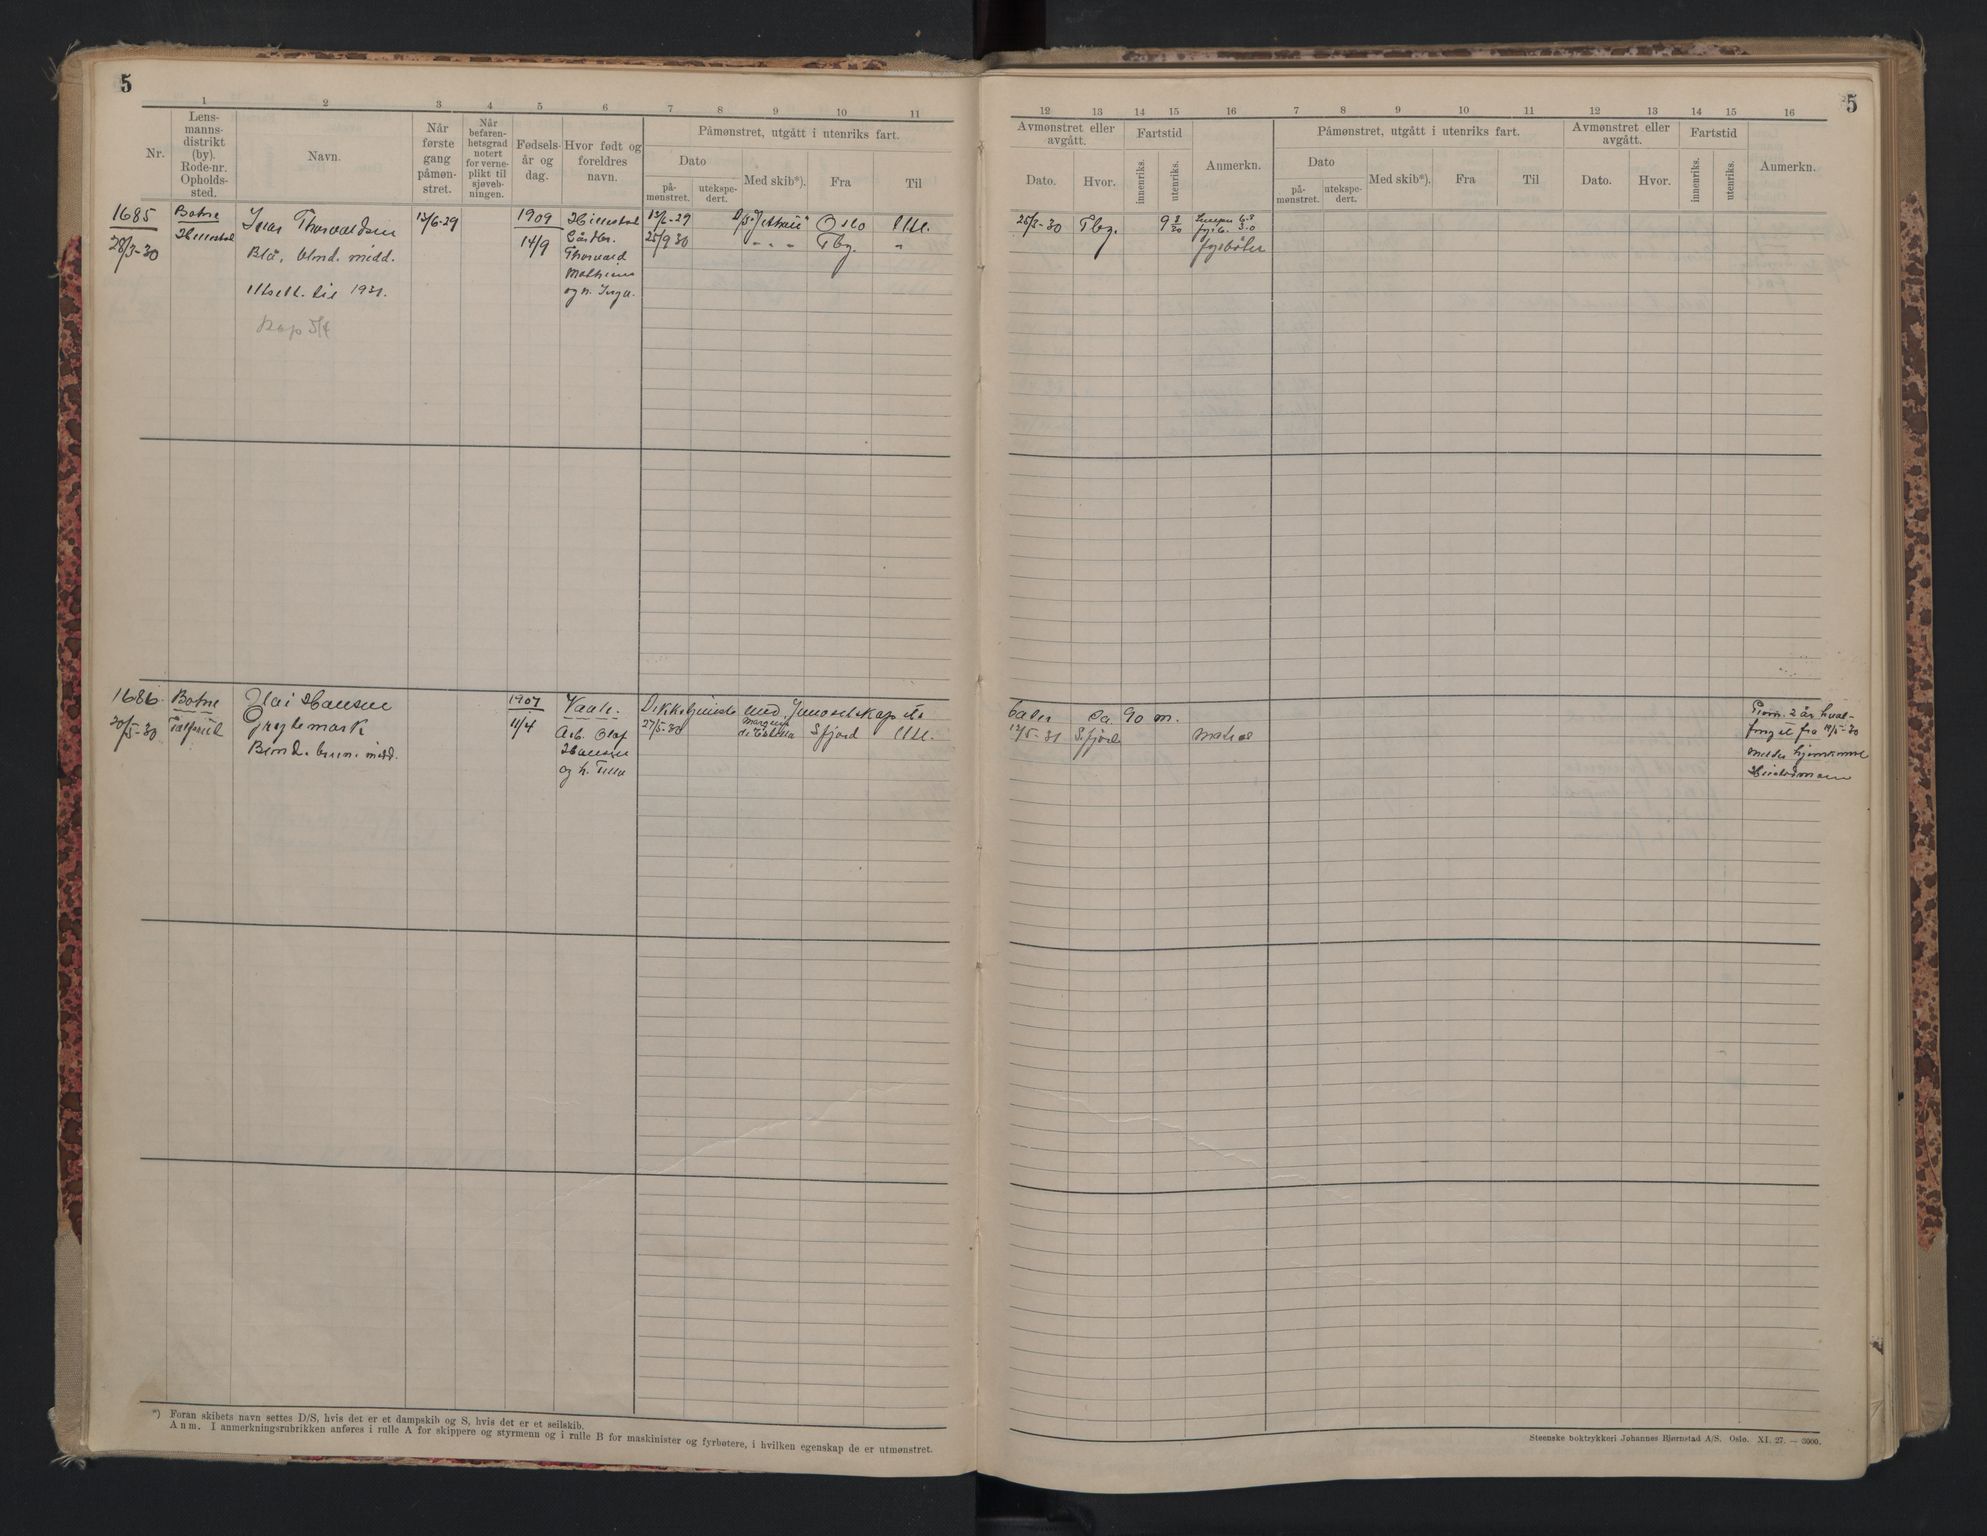 5
1 2 3 4 5 6 7 8 9 10 11
Nr.
Lens-
manns-
distrikt
(by).
Rode-nr.
Opholds-
sted.
Navn.
Når
første
gang
påmøn-
stret.
Når
befaren-
hetsgrad
notert
for verne-
plikt til
sjøveb-
ningen.
Fødsels-
år og
dag.
Hvor født og
foreldres
navn.
Påmønstret, utgått i utenriks fart.
Dato
på-
mønstret.
utekspe-
dert.
Med skib*).
Fra
Til
1685
28/3-30
Botne
Hillestad
Ivar Thorvaldsen
Blå, ubnd. midd.
Utsatt til 1931.
13/6-29
1909
14/9
Hillestad
Gårdbr.
Thorvald
Mathisen
og h. Inga.
13/6-29
Oslo
Utl.
25/9 30 " " " Tbg. "
1686
30/5-30
Botne
Hansen
Grytemark
1907
11/4
Vaale.
Arb. Olaf
Hansen
og h.
27/5-30
S.fjord
Utl.
*) Foran skibets navn settes D/S, hvis det er et dampskib og S, hvis det er et seilskib.
Anm. I anmerkningsrubrikken anføres i rulle A for skippere og styrmenn og i rulle B for maskinister og fyrbøtere, i hvilken egenskap de er utmønstret.
5
12 13 14 15 16 7 8 9 10 11 12 13 14 15 16
Avmønstret eller
avgått.
Dato.
Hvor.
Fartstid
innenriks.
utenriks.
Anmerkn.
Påmønstret, utgått i utenriks fart.
Dato
på-
mønstret.
utekspe-
dert.
Med skib*).
Fra
Til
Avmønstret eller
avgått.
Dato.
Hvor.
Fartstid
innenriks.
utenriks.
Anmerkn.
25/3-30 Tbg.
fyrbøter
ca. 90 m.
12/5-31 S.fjord
matros
2 år hval-
fangst fra
Steenske boktrykkeri Johannes Bjørnstad A/S. Oslo. XI. 27. — 3000.